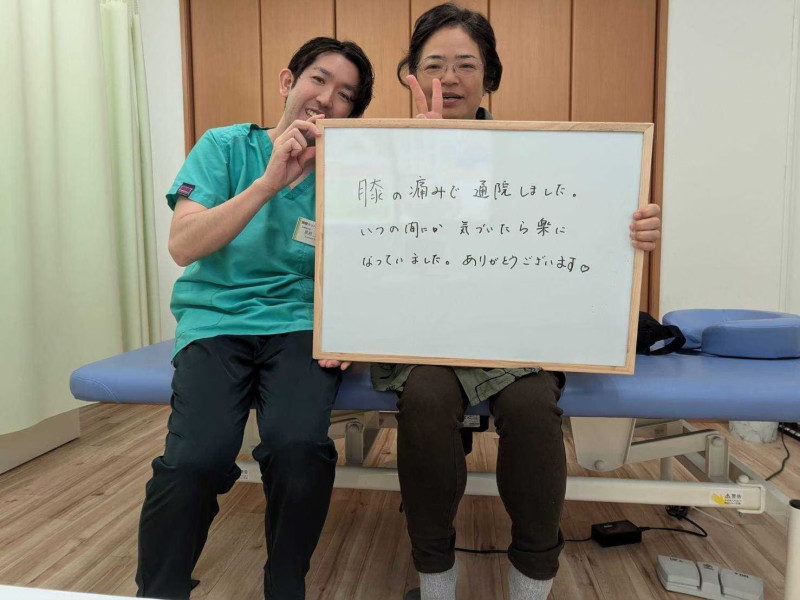 膝の痛みで 通院しました。
いつの間にか 気づいたら楽に
なっていました。ありがとうございます。